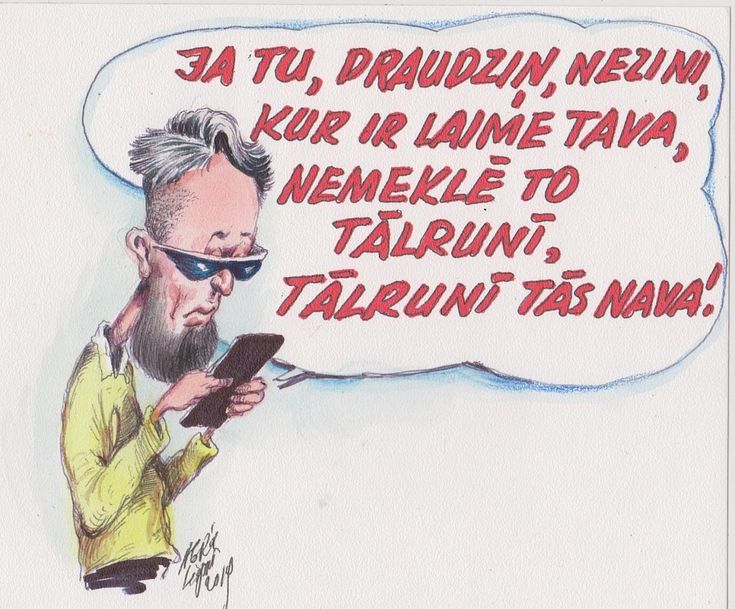 JA TU, DRAUDZIŅ, NEZINI,
KUR IR LAIME TAVA,
NEMEKLĒ TO
TĀLRUNĪ,
TĀLRUNĪ TĀS NAVA!